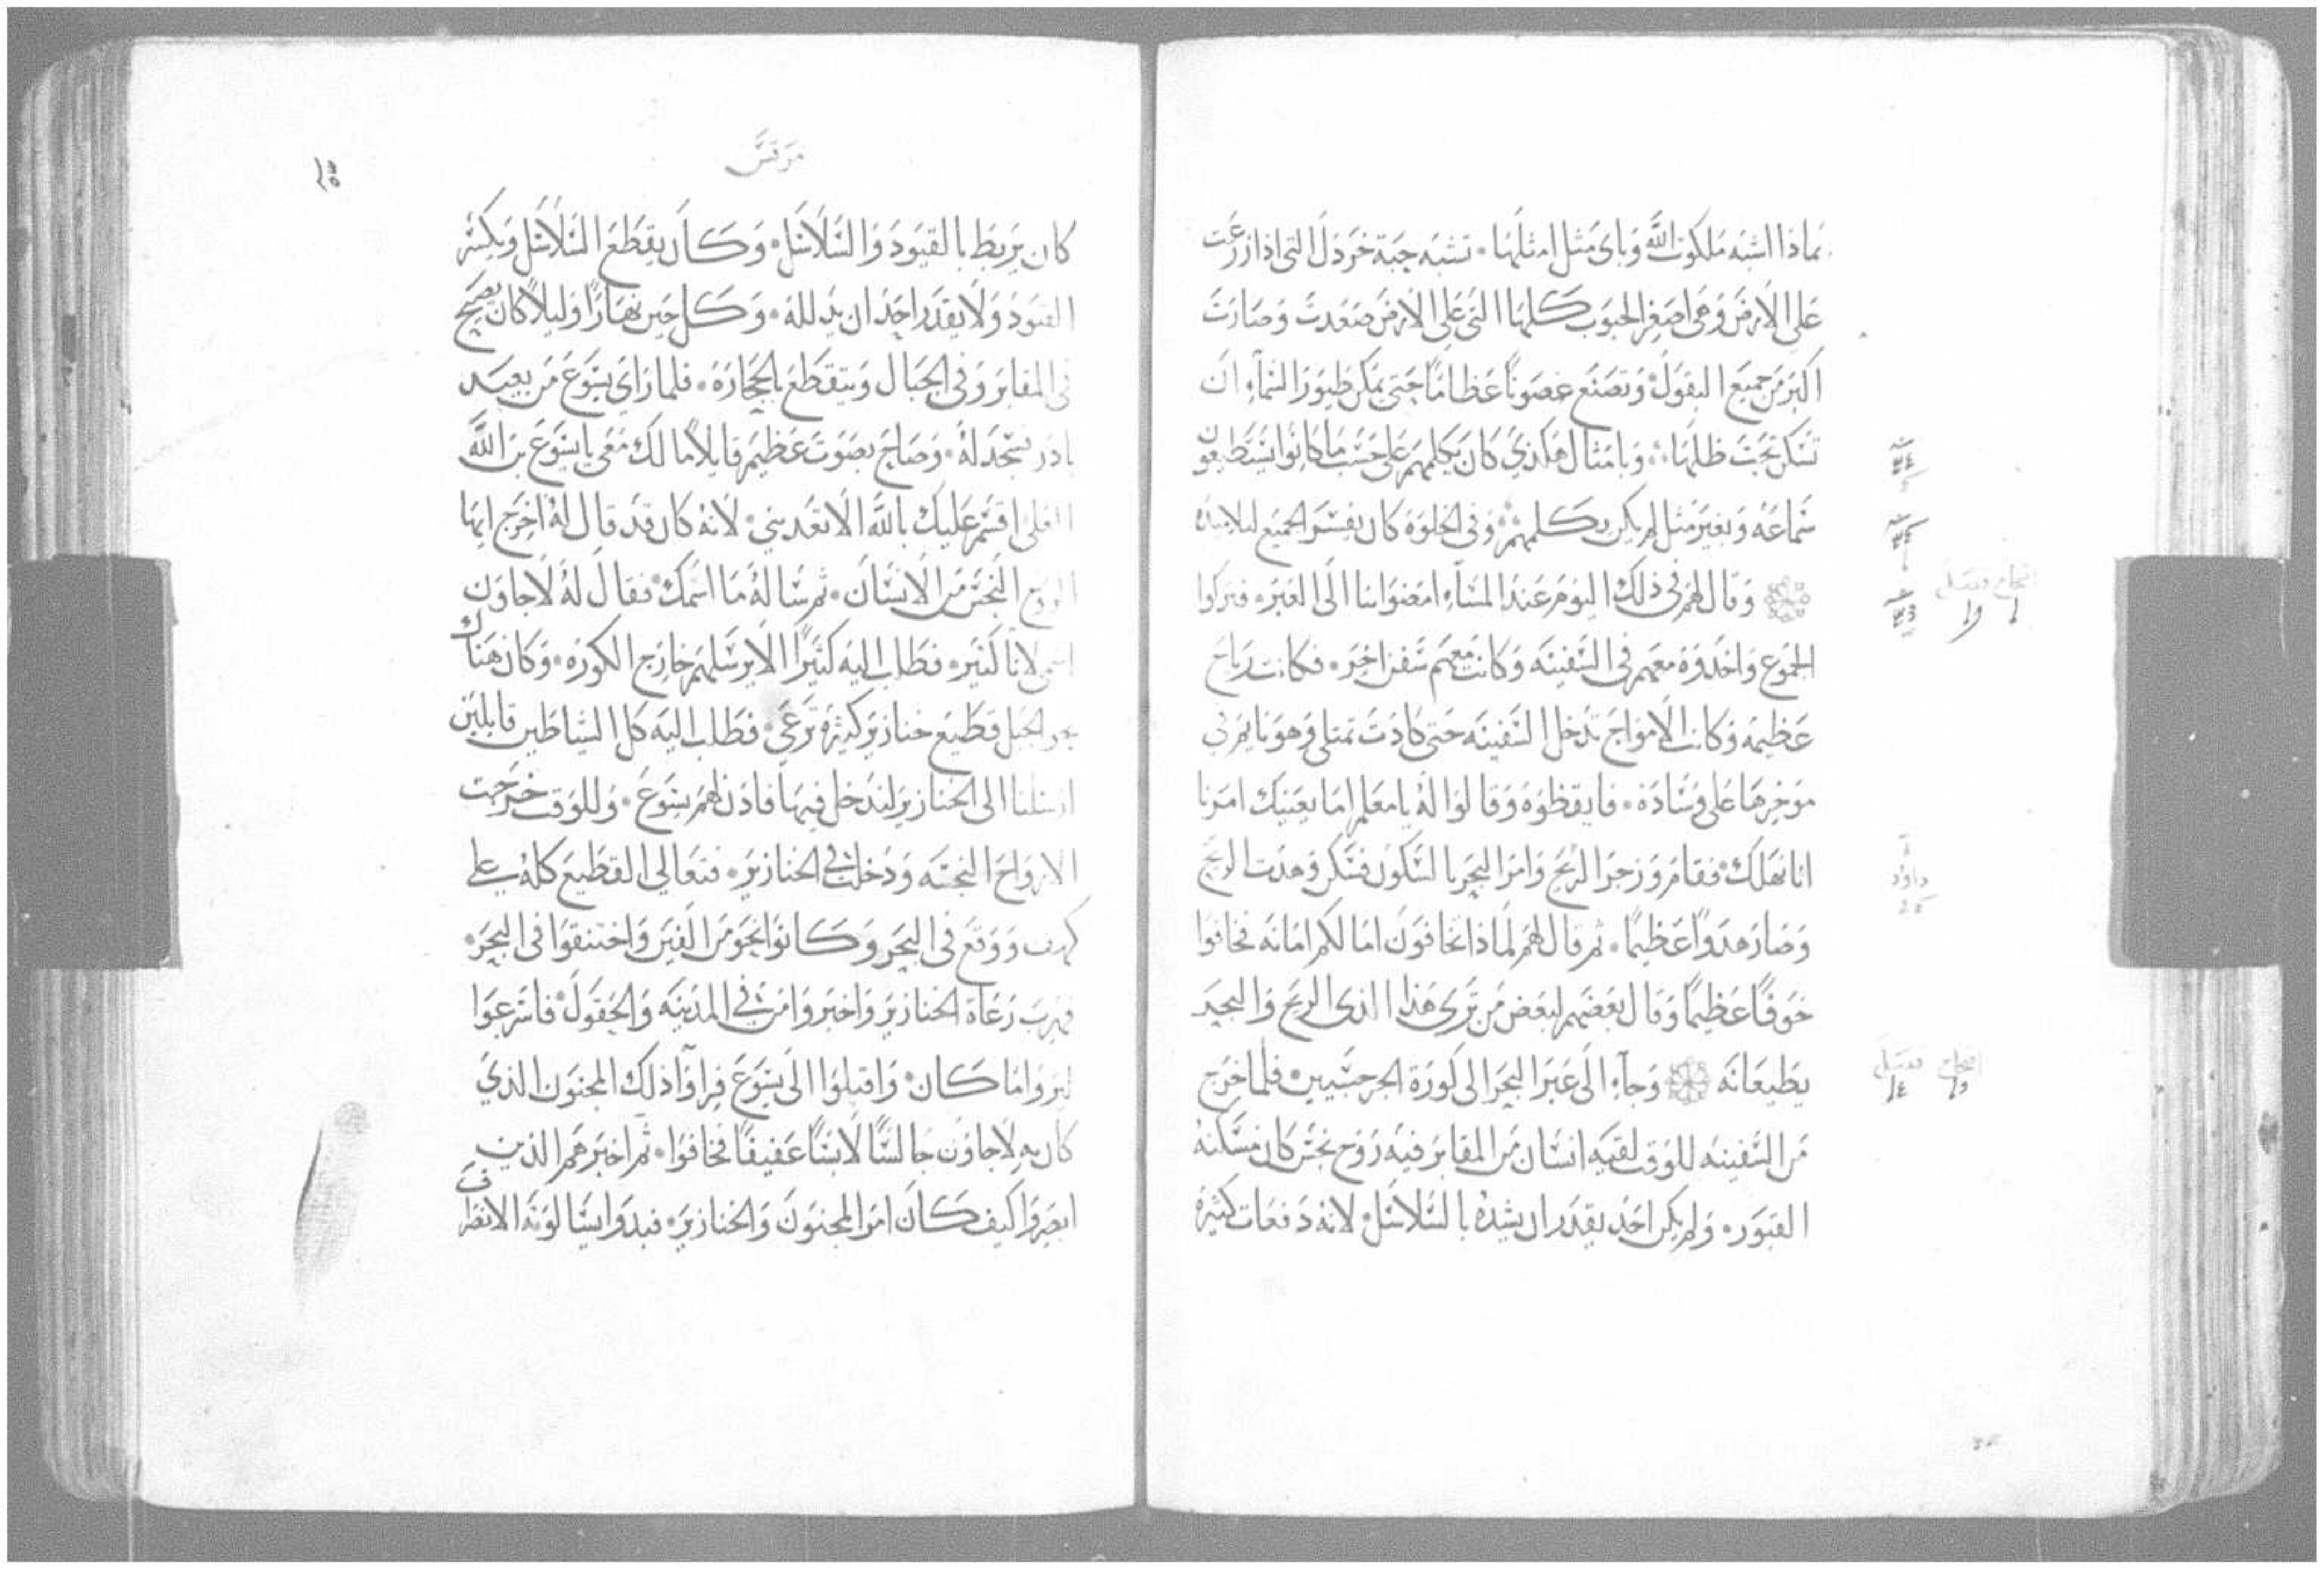 بماذا اشبه ملكوت الله وباى مثل امثلها · تشبه حبة خردل التى اذا زرعت
على الارض وهى اصغر الحبوب كلها التى على الارض صعدت وصارت
اكبر من جميع البقول وتصنع غصونا عظاما حتى يمكن طيور السمآء ان
تسكن تحت ظلها · وبامثال هكذي كان يكلمهم على حسب ما كانوا يستطيعون
سماعه وبغير مثل لم يكن يكلمهم وفى الخلوة كان يفسر الجميع لتلاميذه
وقال لهم فى ذلك اليوم عند المسآء امضوا بنا الى العبر · فتركوا
الجموع واخدوه معهم فى السفينه وكانت معهم سفن اخر · فكانت رياح
عظيمه وكانت الامواج تدخل السفينه حتى كادت تمتلى وهو نايم فى
موخرها على وسادة · فايقظوه وقالوا له يا معلم اما يعنيك امرنا
انا نهلك فقام وزجر الريح وامر البحر بالسكون فسكن وهدت الريح
وصار هدوا عظيما · ثم قال لهم لماذا تخافون اما لكم امانه فخافوا
خوفا عظيما وقال بعضهم لبعض من ترى هذا الذى الريح والبحر
يطيعانه وجآء الى عبر البحر الى كورة الجرجسيين فلما خرج
من السفينه للوقت لقيه انسان من المقابر فيه روح نجس كان مسكنه
القبور · ولم يكن احد يقدر ان يشده بالسلاسل لانه دفعات كثيرة
داود
مرقس
كان يربط بالقيود والسلاسل · وكان يقطع السلاسل ويكسر
القيود ولا يقدر احد ان يدلله · وكل حين نهارا وليلا كان يصيح
فى المقابر وفى الجبال ويتقطع بالحجارة · فلما راي يسوع من بعيد
بادر فسجد له · وصاح بصوت عظيم قايلا ما لك معى يا يسوع بن الله
العلى اقسم عليك بالله الا تعدبني لانه كان قد قال له اخرج ايها
الروح النجس من الانسان · ثم ساله ما اسمك فقال له لاجاون
اسمى لانا كثير · فطلب اليه كثيرا الا يرسلهم خارج الكوره · وكان هناك
نحو الجبل قطيع خنازير كثيرة ترعى · فطلب اليه كل الشياطين قايلين
ارسلنا الى الخنازير لندخل فيها فاذن لهم يسوع · وللوقت خرجت
الارواح النجسه ودخلت فى الخنازير · فتعالى القطيع كله على
كهف ووقع فى البحر وكانوا نحو من الفين واختنقوا فى البحر ·
فهرب رعاة الخنازير واخبروا من فى المدينه والحقول فاسرعوا
ليروا ما كان واقبلوا الى يسوع فراوا ذلك المجنون الذي
كان به لاجاون جالسا لابسا عفيفا فخافوا · ثم اخبرهم الذين
ابصروا كيف كان امر المجنون والخنازير · فبدوا يسالونه الانصراف